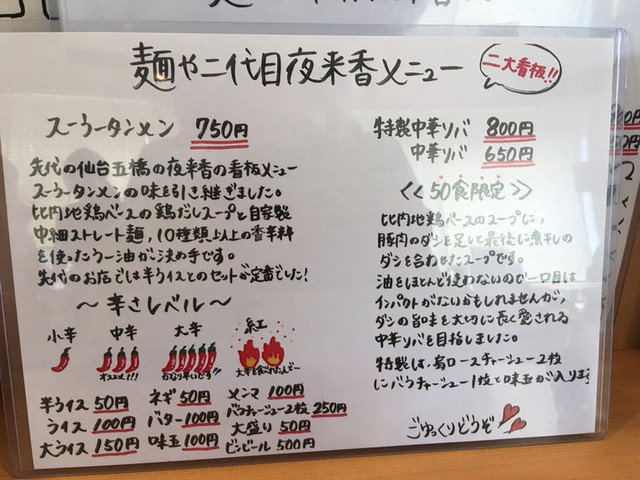 麺や二代目夜来香メニュー
二大看板!!
スーラータンメン 750円
先代の仙台五橋の夜来香の看板メニュー
スーラータンメンの味を引き継ぎました。
比内地鶏ベースの鶏だしスープと自家製
中細ストレート麺,10種類以上の香辛料
を使ったラー油が決め手です。
先代のお店では半ライスとのセットが定番でした!
〜辛さレベル〜
小辛 中辛 大辛 紅
オススメ!!!
かなり辛いです!!
大辛を食べれた人どー
半ライス 50円
ライス 100円
大ライス 150円
ネギ 50円
バター 100円
味玉 100円
メンマ 100円
バラチャーシュー2枚 250円
大盛り 50円
ビンビール 500円
特製中華ソバ 800円
中華ソバ 650円
<<50食限定>>
比内地鶏ベースのスープに,
豚肉のダシを足して最後に煮干しの
ダシを合わせたスープです。
油をほとんど使わないので一口目は
インパクトがないかもしれませんが,
ダシの旨味を大切に長く愛される
中華ソバを目指しました。
特製は,肩ロースチャーシュー2枚
にバラチャーシュー1枚と味玉が入ります
ごゆっくりどうぞ